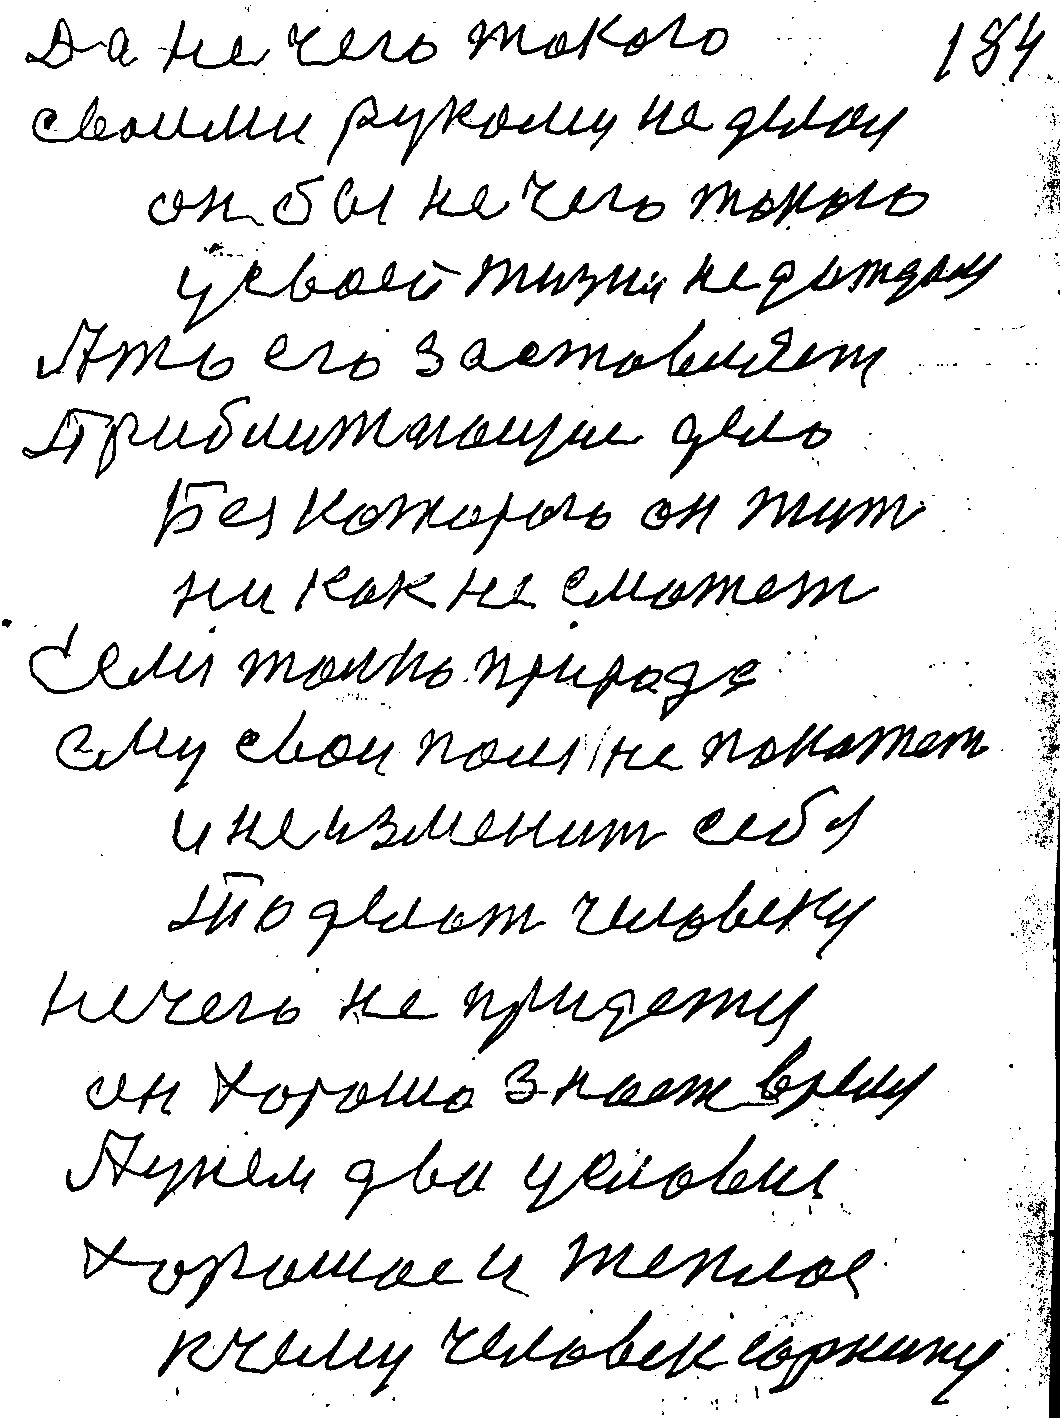 Да не чего такого 184
своими рукому не делал
он бы не чего такого
у своей жизни не дождал
А то его заставляет
Приближающие дело
Без которого он жит
ни как не сможет
Если только природе
ему свои поля не покажет
и не изменит себя
То делат человеку
нечего не придетц
он хорошо знает время
Нужем два условия
хорошое и теплое
кчему человек